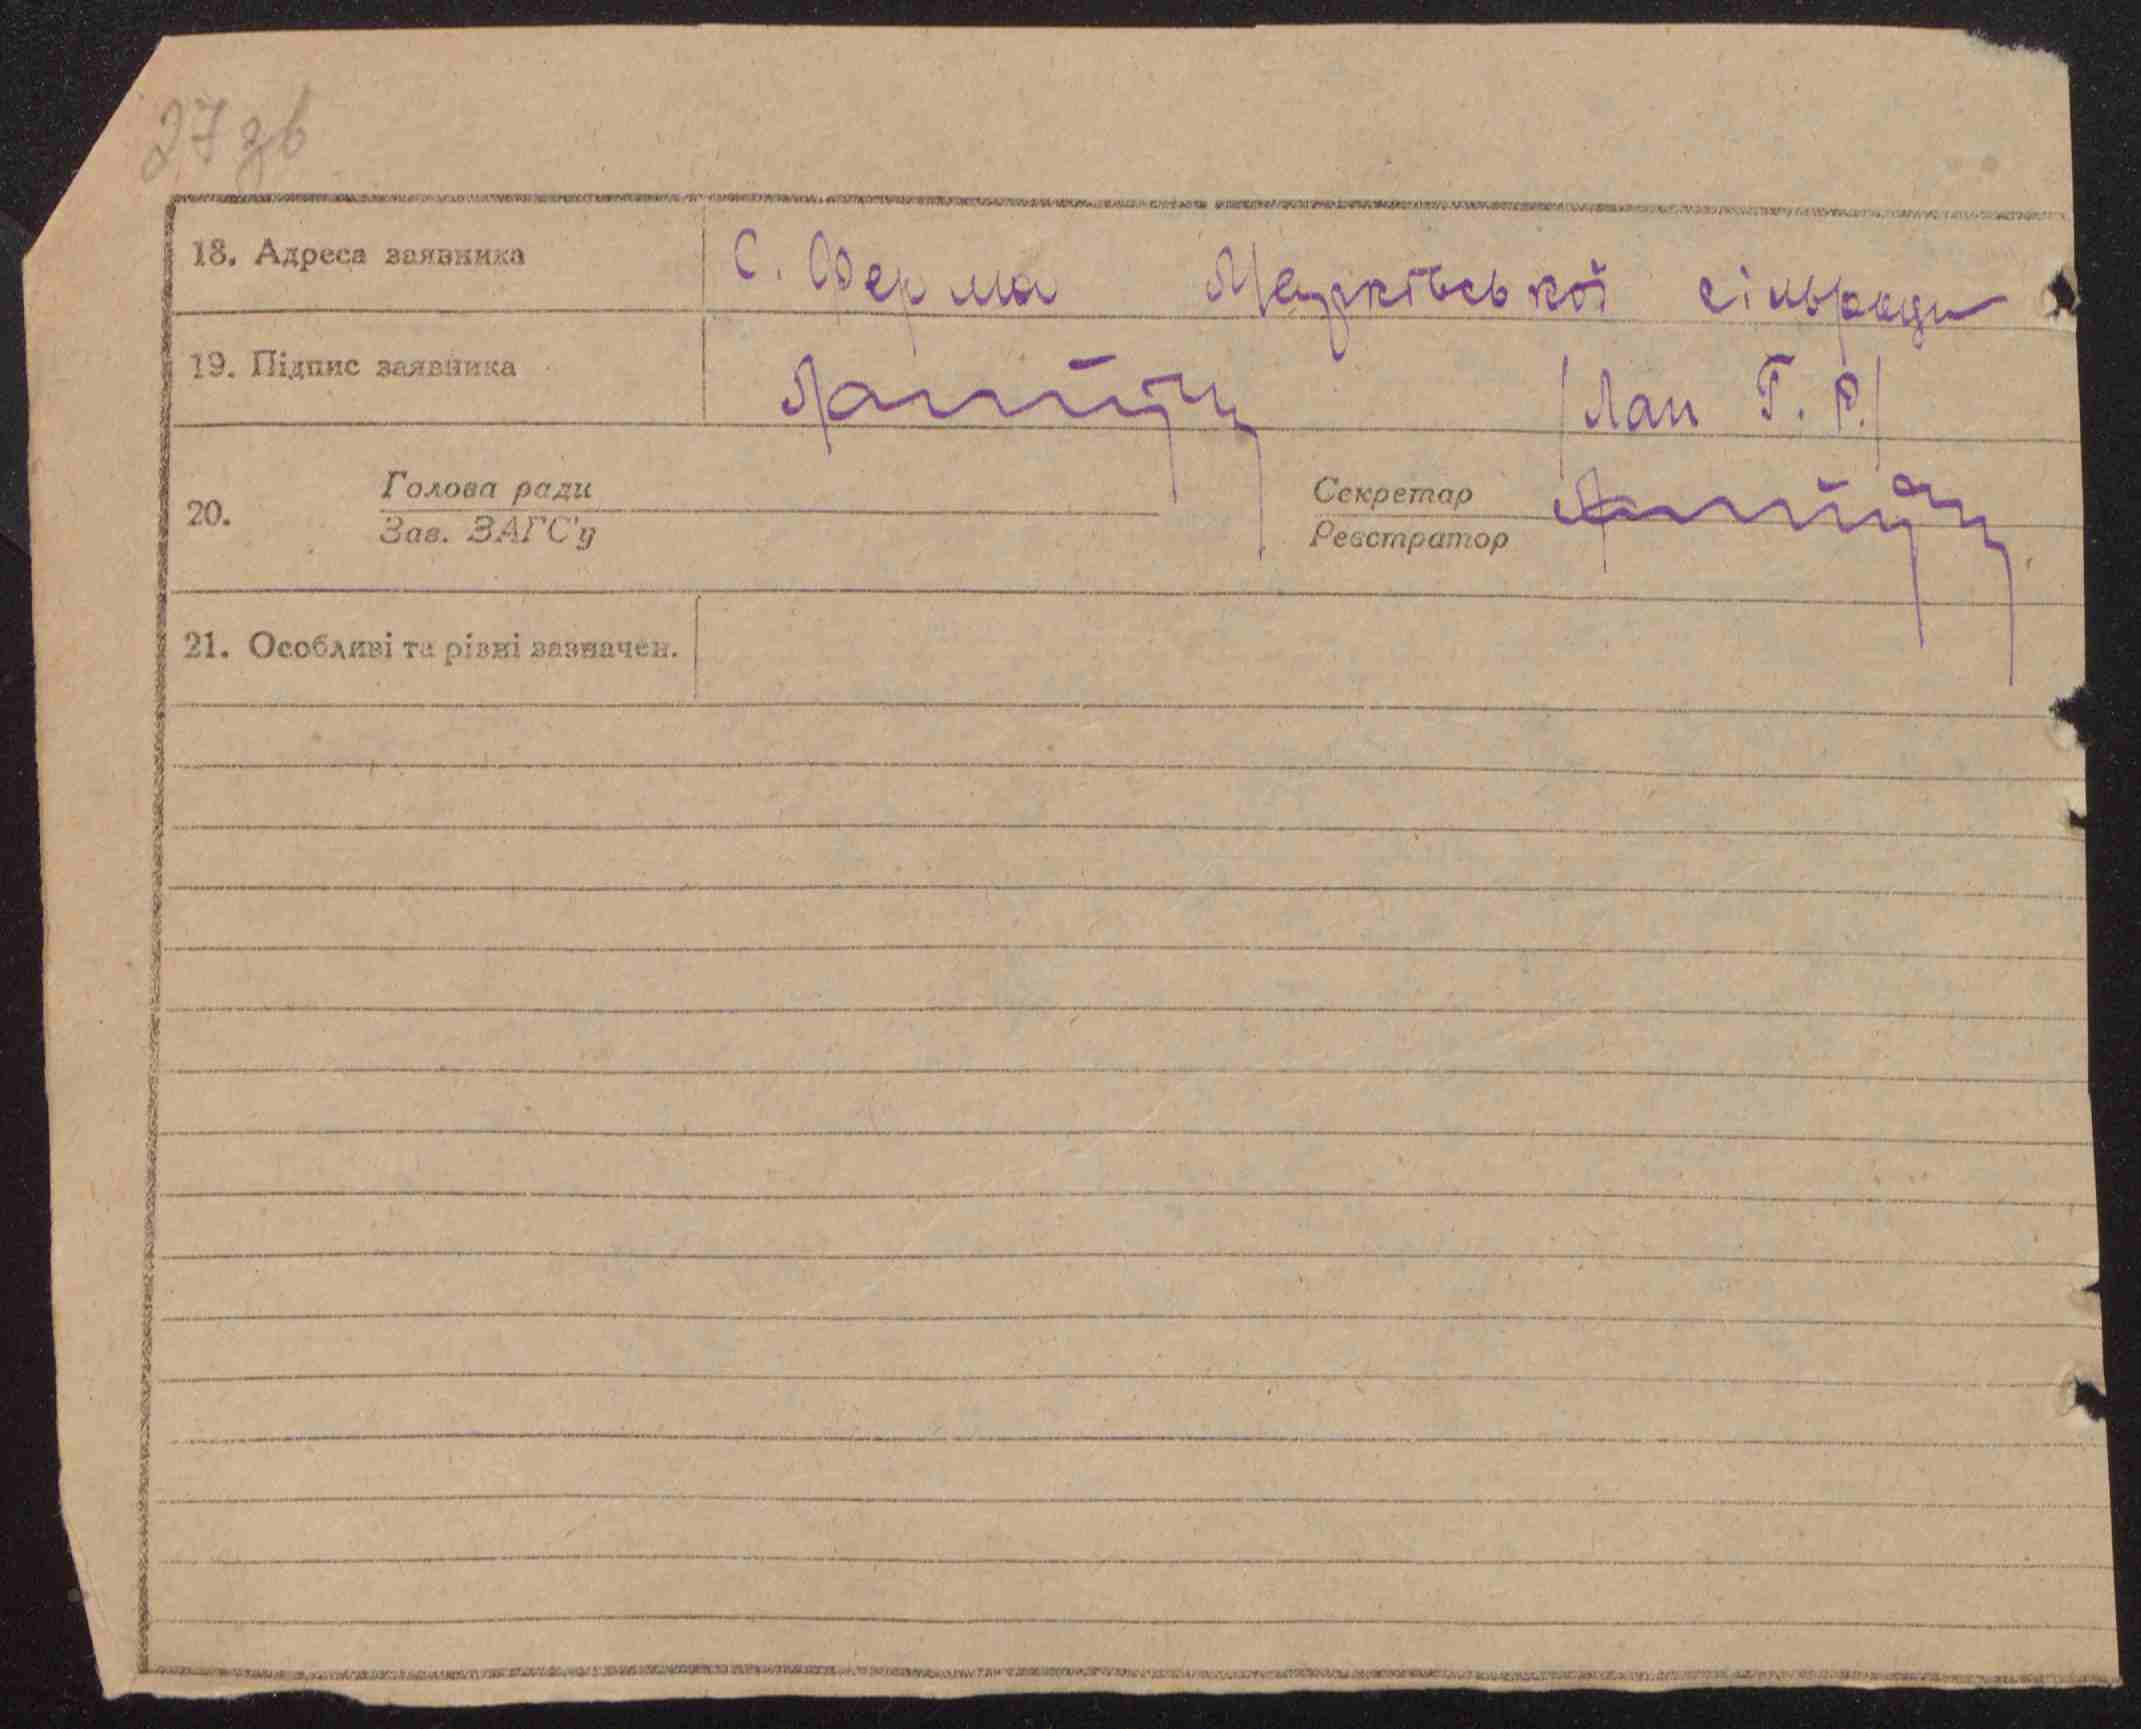 27 зв
18. Адреса заявника С. Ферма сільради
19. Підпис заявника /Лап Г. Р./
20. Голова ради Секретар
Зав. ЗАГС'у Реєстратор
21. Особливі та різні зазначен.